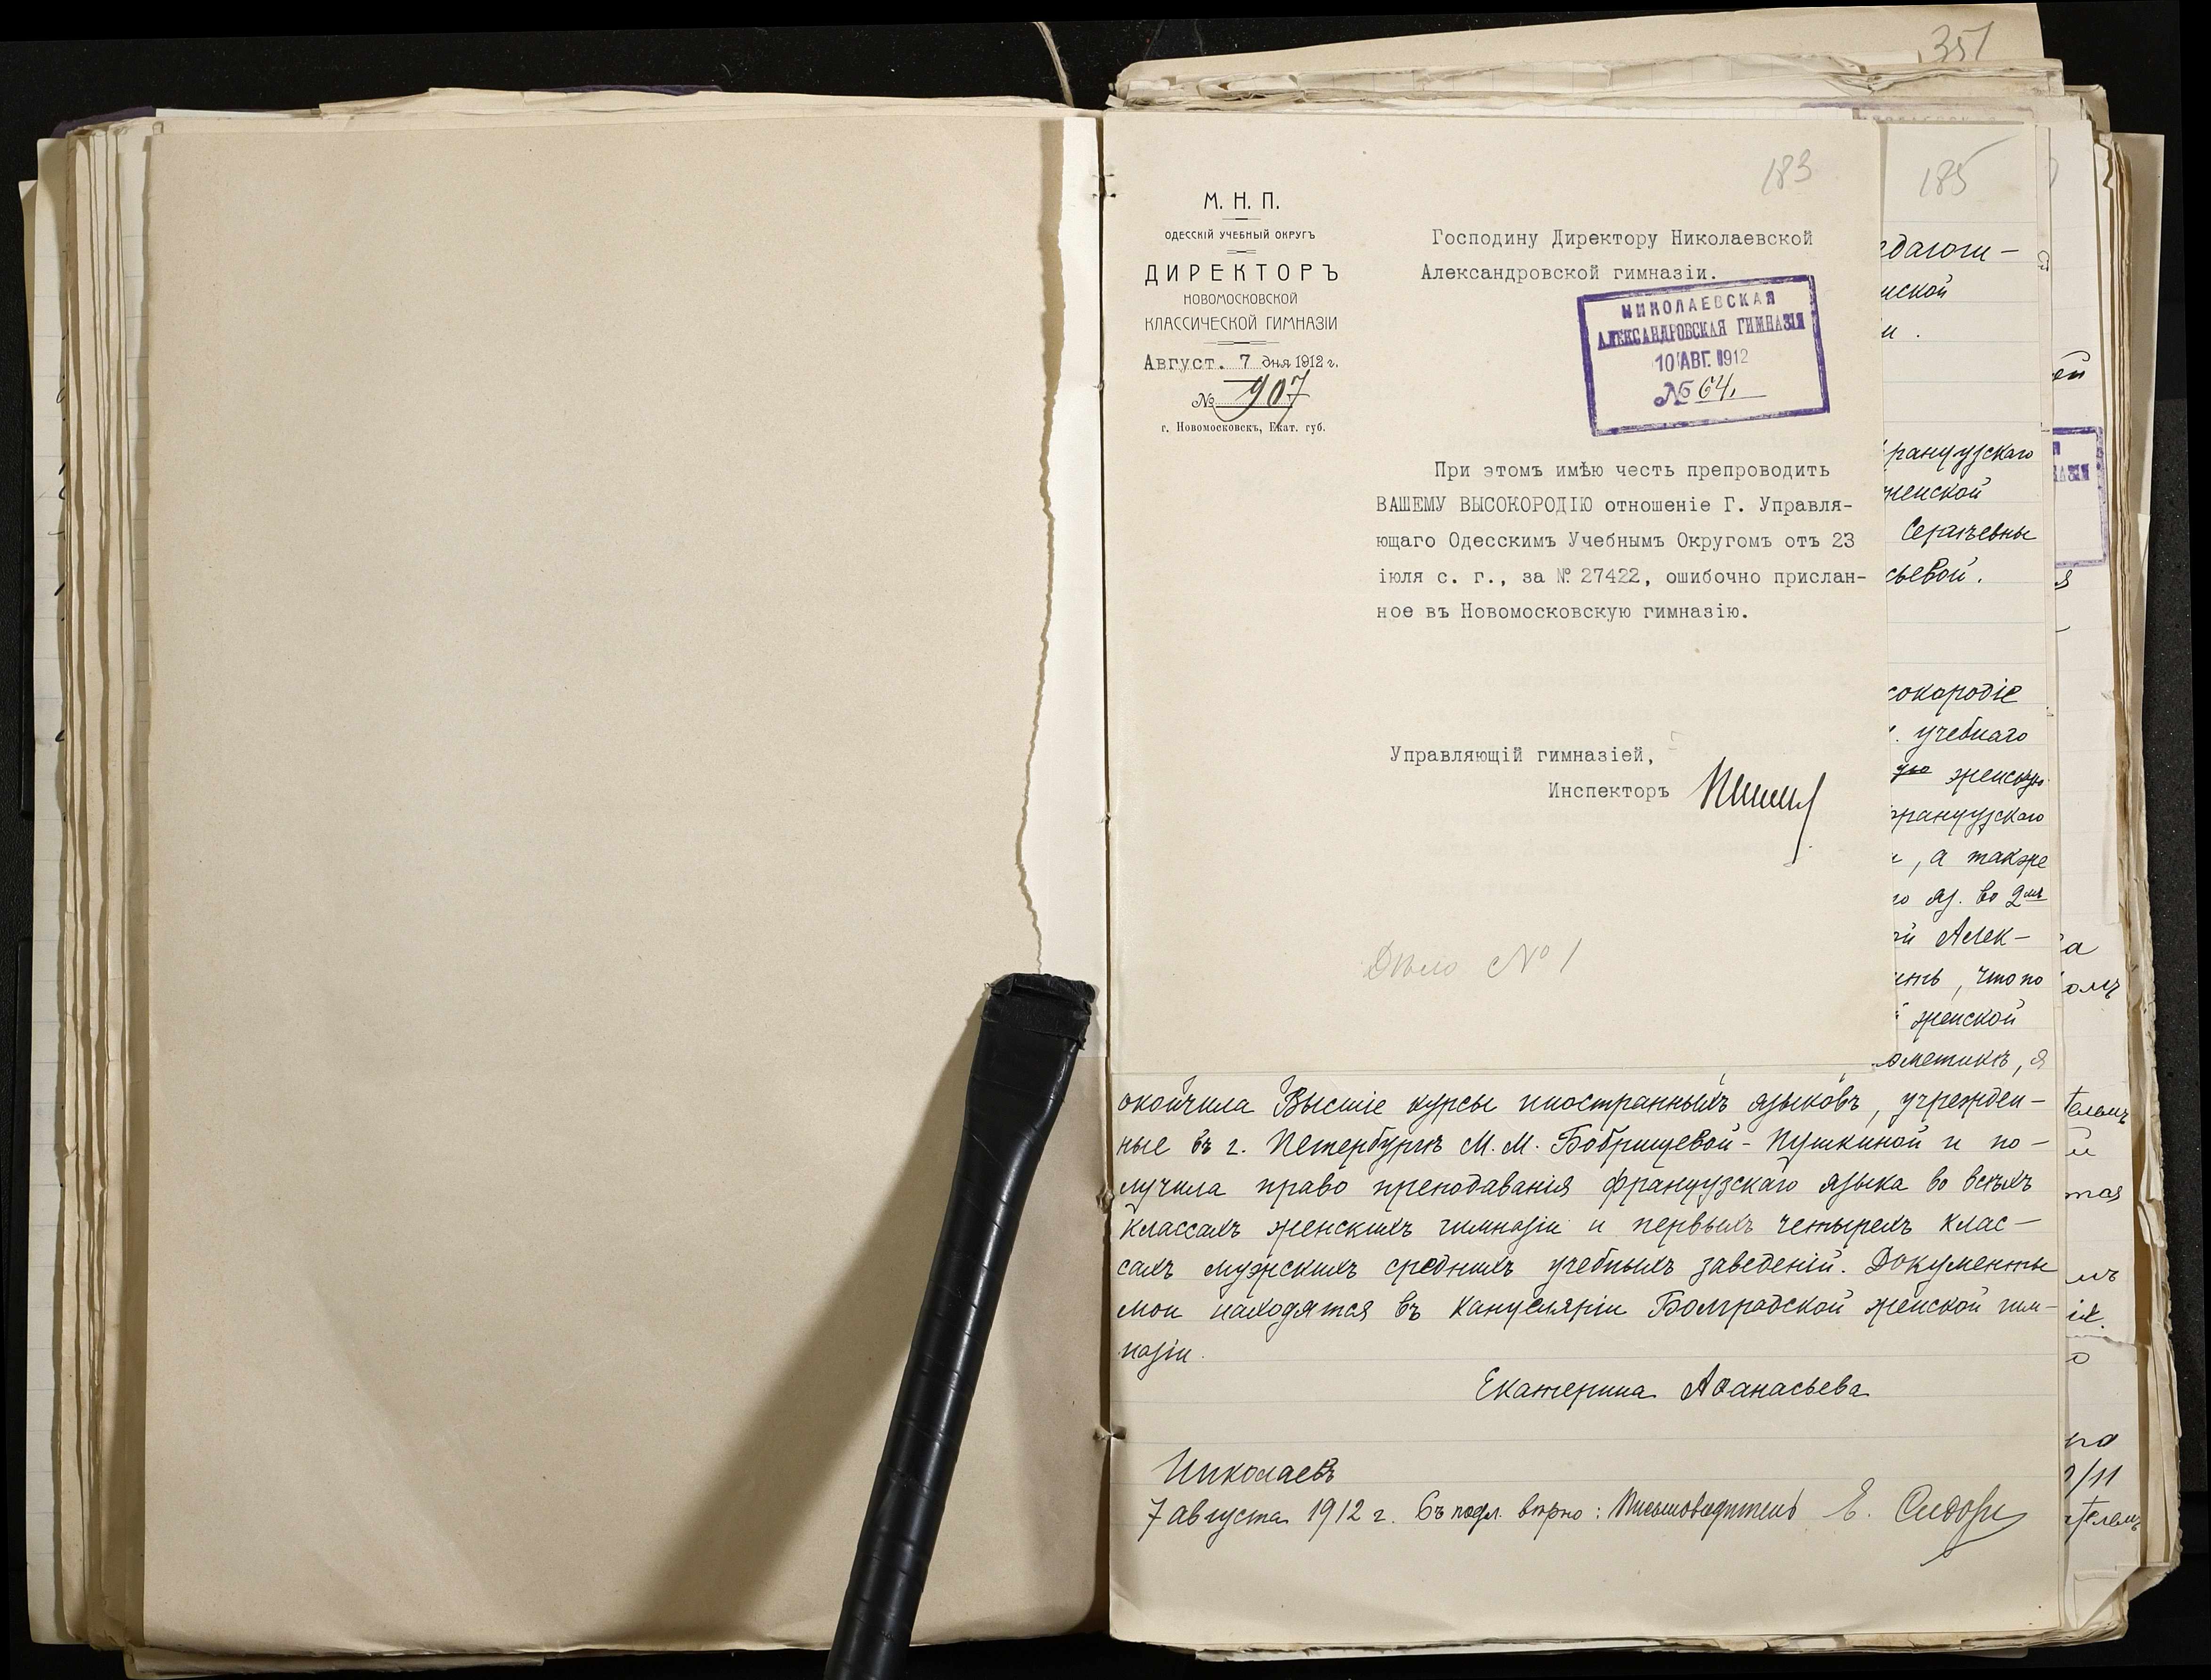 351
183
М. Н. П.
ОДЕССКІЙ УЧЕБНЫЙ ОКРУГЪ
ДИРЕКТОРЪ
НОВОМОСКОВСКОЙ
КЛАССИЧЕСКОЙ ГИМНАЗІИ
Август. 7 дня 1912 г.
№ 907
г. Новомосковскъ, Екат. губ.
Господину Директору Николаевской
Александровской гимназіи.
НИКОЛАЕВСКАЯ
АЛЕКСАНДРОВСКАЯ ГИМНАЗІЯ
10 АВГ. 1912
№ 64.
При этомъ имѣю честь препроводить
ВАШЕМУ ВЫСОКОРОДІЮ отношеніе Г. Управля-
ющаго Одесскимъ Учебнымъ Округомъ отъ 23
іюля с. г., за № 27422, ошибочно прислан-
ное въ Новомосковскую гимназію.
Управляющій гимназіей,
Инспекторъ
Дѣло № 1
185
едагоги-
нской
и.
французскаго
женской
Сергѣевны
сьевой.
сокородіе
учебнаго
ую женскую
французскаго
, а также
го яз. во 2мъ
ой Алек-
ить, что по
женской
ометикѣ, я
окончила Высшіе курсы иностранныхъ языковъ, учрежден-
ные въ г. Петербургѣ М. М. Бобрищевой-Пушкиной и по-
лучила право преподаванія французскаго языка во всѣхъ
классахъ женскихъ гимназіи и первыхъ четырехъ клас-
сахъ мужскихъ среднихъ учебныхъ заведеній. Документы
мои находятся въ канцеляріи Болградской женской гим-
назіи.
Екатерина Аѳанасьева
Николаевъ
7 августа 1912 г. Съ подл. вѣрно: Письмоводитель Е. Сидор